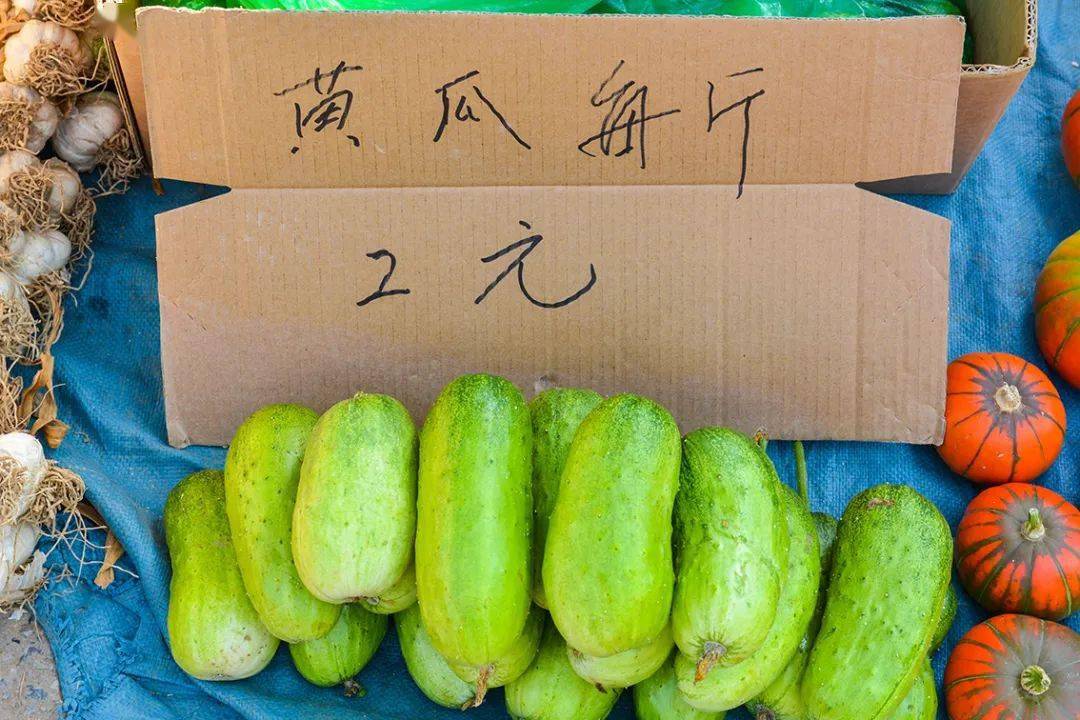 黄瓜每斤
2元